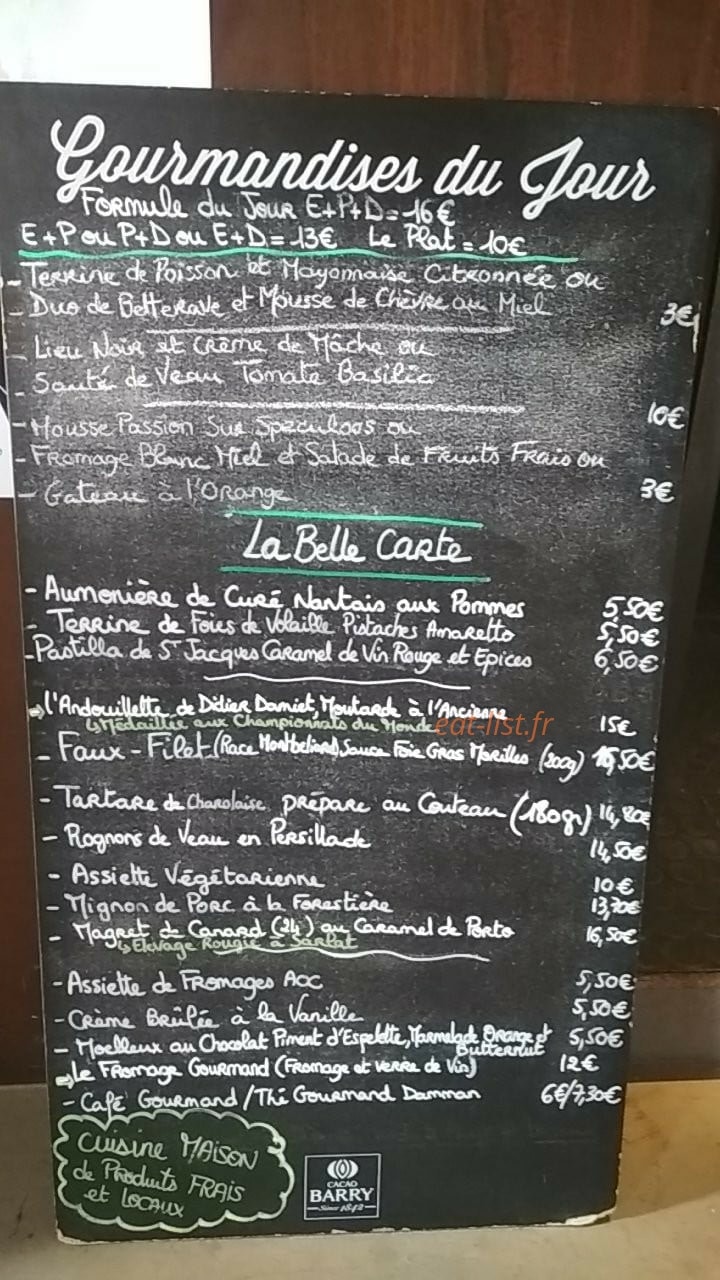 Gourmandises du Jour
Formule du Jour E+P+D=16€
E+P ou P+D ou E+D=13€ Le Plat=10€
-Terrine de Poisson et Mayonnaise Citronnée ou
-Duo de Betterave et Mousse de Chèvre au Miel
3€
-Lieu Noir et Crème de Mâche ou
-Sauté de Veau Tomate Basilic
10€
-Mousse Passion Sur Speculoos ou
-Fromage Blanc Miel et Salade de Fruits Frais ou
-Gateau à l'Orange 3€
La Belle Carte
-Aumonière de Curé Nantais aux Pommes 5,50€
-Terrine de Foies de Volaille Pistaches Amaretto 5,50€
-Pastilla de St Jacques Caramel de Vin Rouge et Epices 6,50€
l'Andouillette de Didier Damiet, Moutarde à l'Ancienne 15€
Médaillée aux Championnats du Monde
eat-list.fr
-Faux-Filet (Race Montbeliard) Sauce Foie Gras Morilles (200g) ,50€
-Tartare de Charolaise préparé au Couteau (180gr) 14,80€
-Rognons de Veau en Persillade 14,50€
-Assiette Végétarienne 10€
-Mignon de Porc à la Forestière 13,70€
-Magret de Canard (24) au Caramel de Porto 16,50€
Elevage Rougié à Sarlat
-Assiette de Fromages AOC 5,50€
-Crème Brûlée à la Vanille 5,50€
-Moelleux au Chocolat Piment d'Espelette, Marmelade Orange et 5,50€
Butternut
Le Fromage Gourmand (Fromage et verre de Vin) 12€
-Café Gourmand/Thé Gourmand Damman 6€/7,30€
Cuisine MAISON
de Produits FRAIS
et LOCAUX
CACAO
BARRY
Since 1842